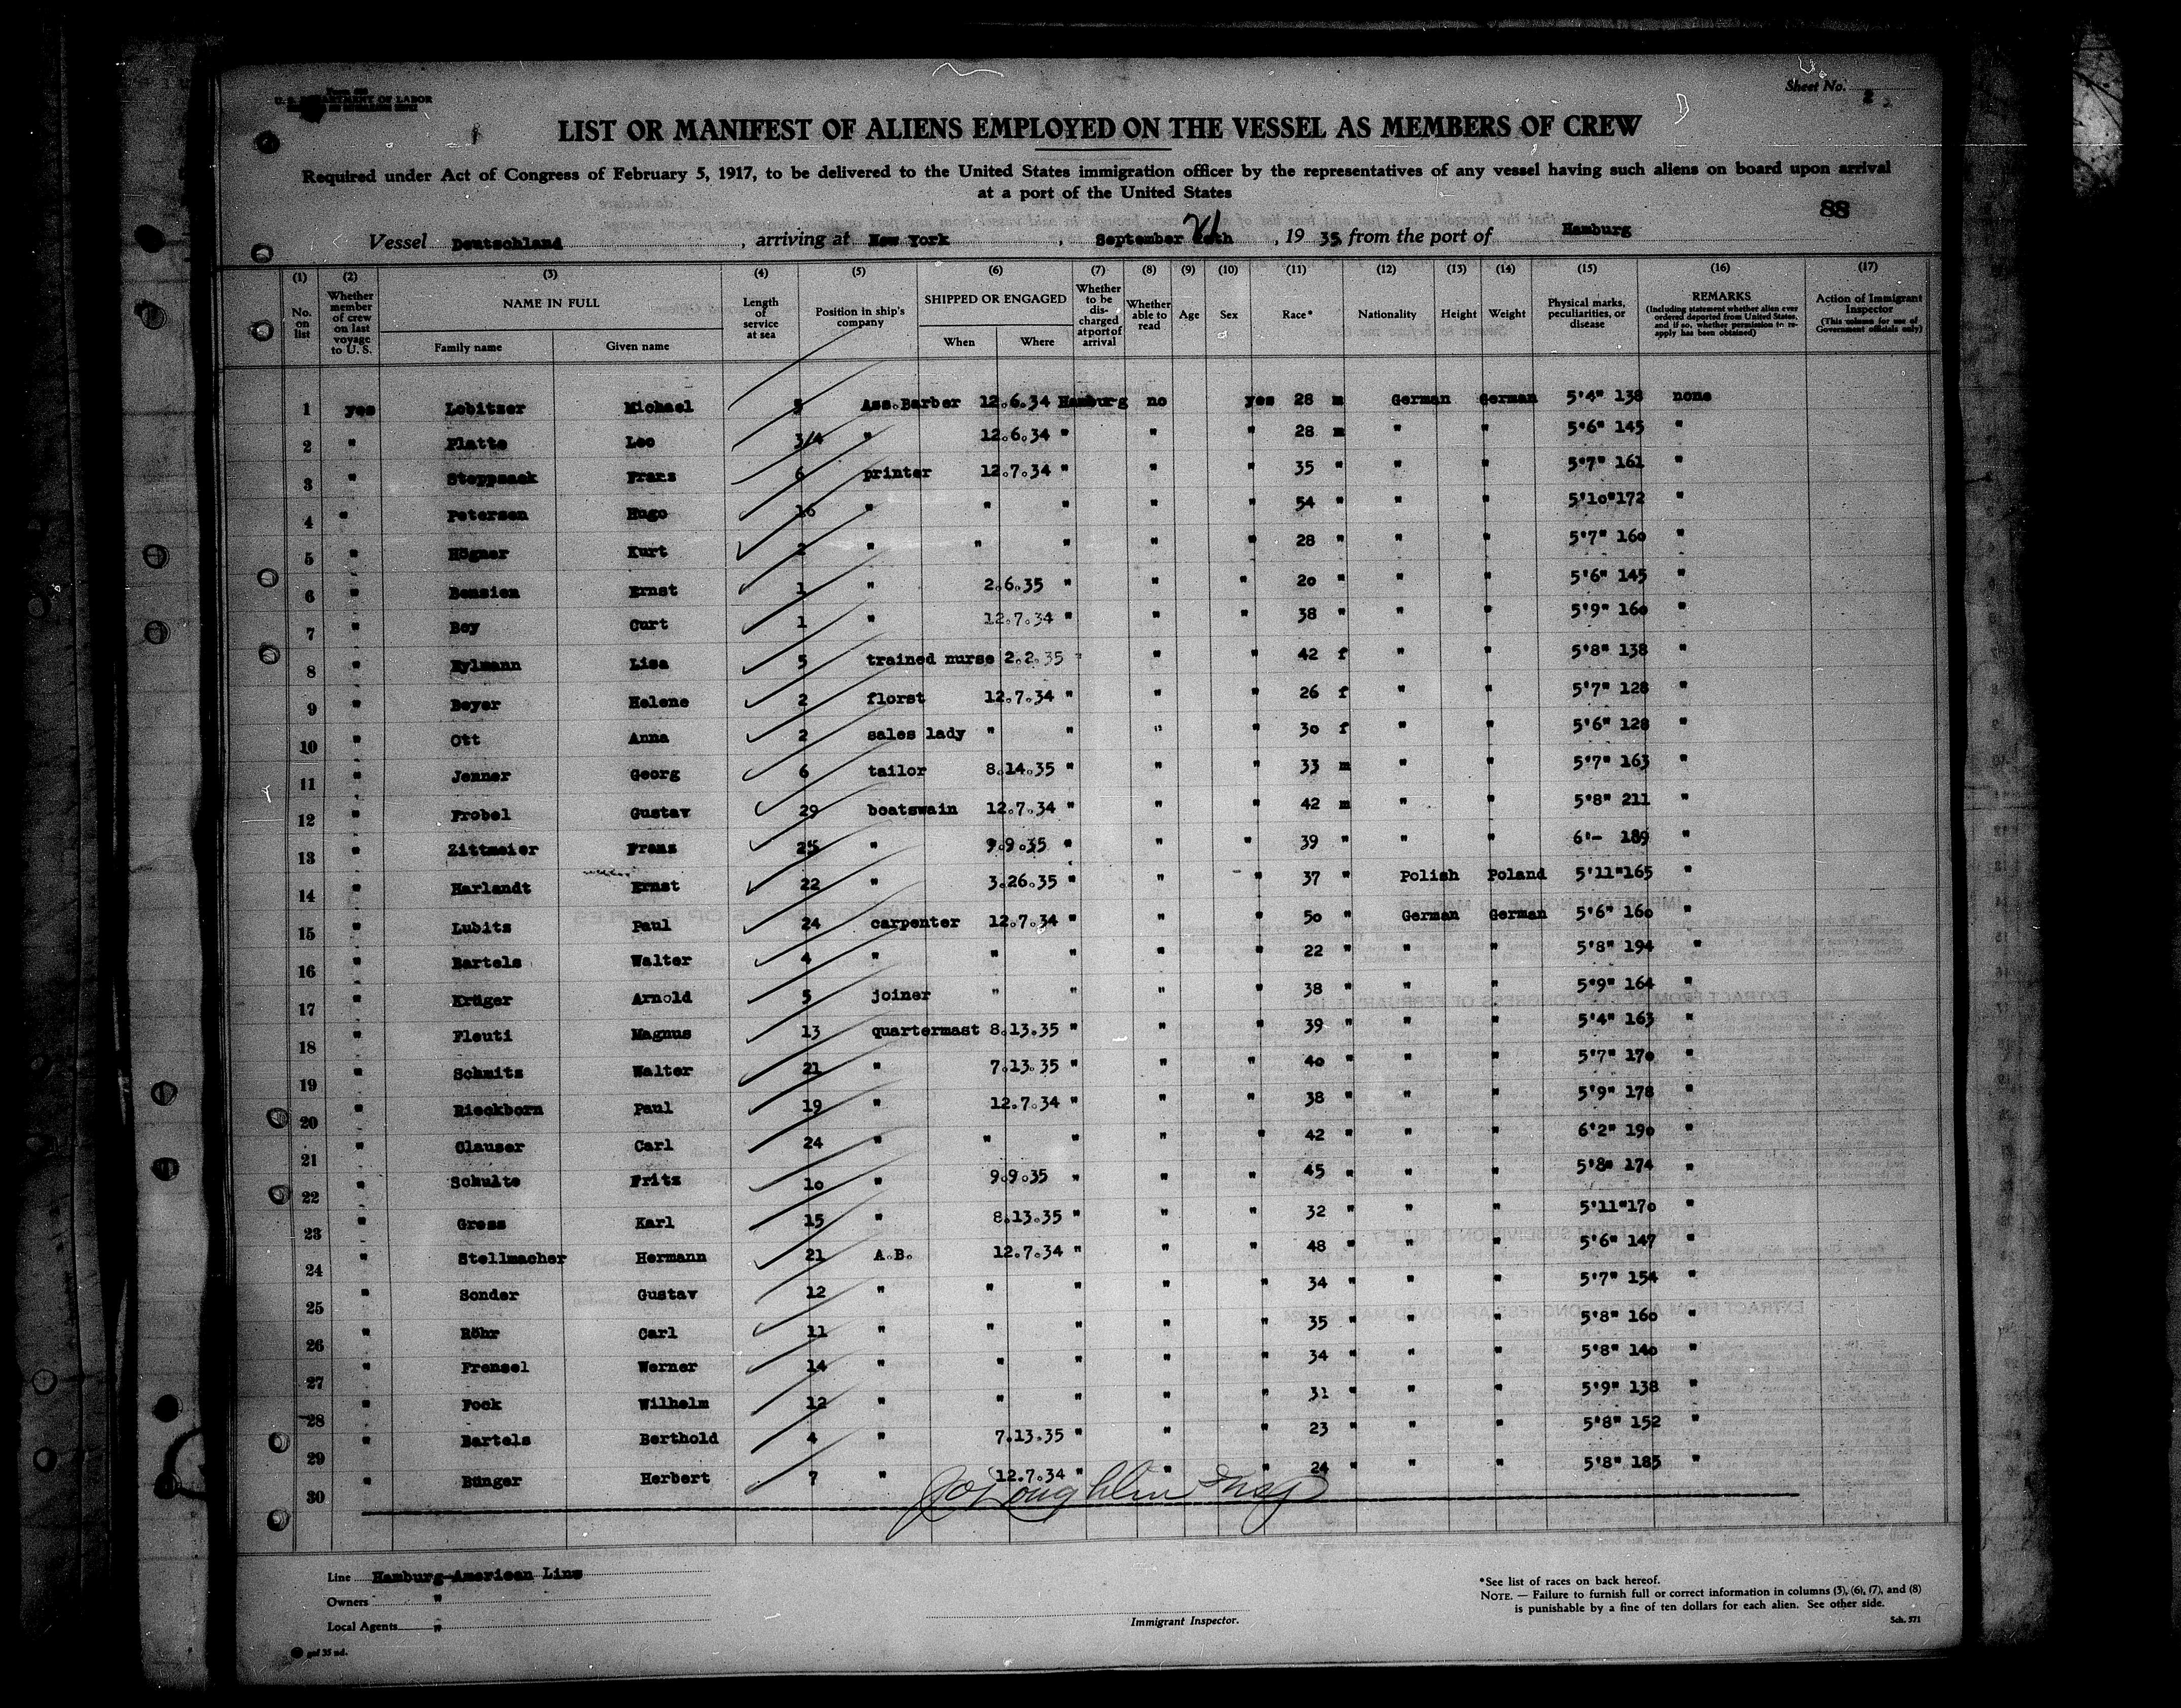 U. S. DEPARTMENT OF LABOR
Sheet No. 2
LIST OR MANIFEST OF ALIENS EMPLOYED ON THE VESSEL AS MEMBERS OF CREW
Required under Act of Congress of February 5, 1917, to be delivered to the United States immigration officer by the representatives of any vessel having such aliens on board upon arrival
at a port of the United States
88
Vessel Deutschland , arriving at New York , September 21 , 19 35 from the port of Hamburg
(1) (2) (3) (4) (5) (6) (7) (8) (9) (10) (11) (12) (13) (14) (15) (16) (17)
No. on list
Whether member of crew on last voyage to U. S.
NAME IN FULL
Family name Given name
Length of service at sea
Position in ship's company
SHIPPED OR ENGAGED
When Where
Whether to be discharged at port of arrival
Whether able to read
Age
Sex
Race*
Nationality
Height
Weight
Physical marks, peculiarities, or disease
REMARKS
(Including statement whether alien ever ordered deported from United States, and if so, whether permission to re-apply has been obtained)
Action of Immigrant Inspector
(This column for use of Government officials only)
1 yes Lobitzer Michael Ass.Barber 12.6.34 Hamburg no yes 28 m German German 5'4" 138 none
2 " Platte Leo 3/4 " 12.6.34 " " " 28 m " " 5'6" 145 "
3 " Steppsack Franz 6 printer 12.7.34 " " " 35 " " " 5'7" 161 "
4 " Petersen Hugo 16 " " " " " 54 " " " 5'10"172 "
5 " Högner Kurt 2 " " " " " 28 " " " 5'7" 160 "
6 " Bensien Ernst 1 " 2.6.35 " " " 20 " " " 5'6" 145 "
7 " Bey Curt 1 " 12.7.34 " " " 38 " " " 5'9" 160 "
8 " Eylmann Lisa 5 trained nurse 2.2.35 " " " 42 f " " 5'8" 138 "
9 " Beyer Helene 2 florst 12.7.34 " " " 26 f " " 5'7" 128 "
10 " Ott Anna 2 sales lady " " " " 30 f " " 5'6" 128 "
11 " Jenner Georg 6 tailor 8.14.35 " " " 33 m " " 5'7" 163 "
12 " Frobel Gustav 29 boatswain 12.7.34 " " " 42 m " " 5'8" 211 "
13 " Zittmeier Franz 25 " 9.9.35 " " " 39 " " " 6'- 189 "
14 " Harlandt Ernst 22 " 3.26.35 " " " 37 " Polish Poland 5'11"165 "
15 " Lubitz Paul 24 carpenter 12.7.34 " " " 50 " German German 5'6" 160 "
16 " Bartels Walter 4 " " " " " 22 " " " 5'8" 194 "
17 " Krüger Arnold 5 joiner " " " " 38 " " " 5'9" 164 "
18 " Fleuti Magnus 13 quartermast 8.13.35 " " " 39 " " " 5'4" 163 "
19 " Schmitz Walter 21 " 7.13.35 " " " 40 " " " 5'7" 170 "
20 " Rieckborn Paul 19 " 12.7.34 " " " 38 " " " 5'9" 178 "
21 " Glauser Carl 24 " " " " " 42 " " " 6'2" 190 "
22 " Schulte Fritz 10 " 9.9.35 " " " 45 " " " 5'8" 174 "
23 " Gress Karl 15 " 8.13.35 " " " 32 " " " 5'11"170 "
24 " Stellmacher Hermann 21 A.B. 12.7.34 " " " 48 " " " 5'6" 147 "
25 " Sonder Gustav 12 " " " " " 34 " " " 5'7" 154 "
26 " Röhr Carl 11 " " " " " 35 " " " 5'8" 160 "
27 " Frensel Werner 14 " " " " " 34 " " " 5'8" 140 "
28 " Fock Wilhelm 12 " " " " " 31 " " " 5'9" 138 "
29 " Bartels Berthold 4 " 7.13.35 " " " 23 " " " 5'8" 152 "
30 " Bünger Herbert 7 " 12.7.34 " " " 24 " " " 5'8" 185 "
Insp
Line Hamburg-American Line
Owners "
Local Agents "
Immigrant Inspector.
*See list of races on back hereof.
NOTE. — Failure to furnish full or correct information in columns (3), (6), (7), and (8)
is punishable by a fine of ten dollars for each alien. See other side.
Sch. 571